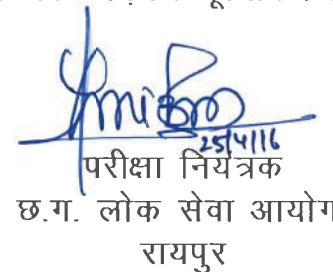 25/4/16
परीक्षा नियंत्रक
छ.ग. लोक सेवा आयोग
रायपुर